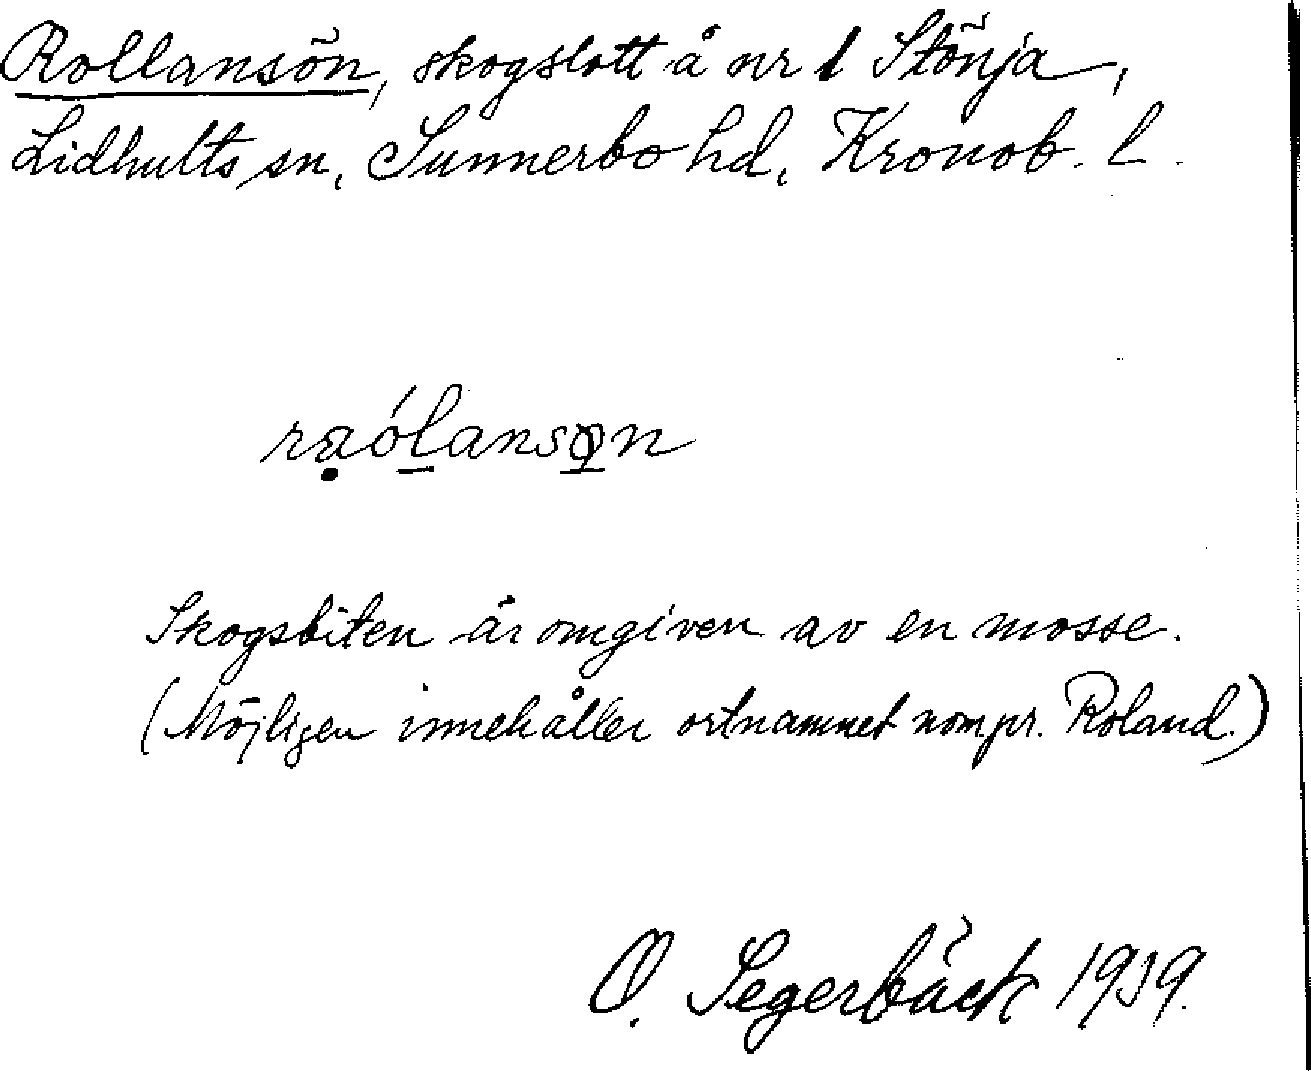 Rollansön, skogslott å nr 1 Stönja,
Lidhults sn, Sunnerbo hd, Kronob. l.
rạólansọn
Skogsbiten är omgiven av en mosse.
(Möjligen innehåller ortnamnet nom pr. Roland.)
O. Segerbäck 1939.